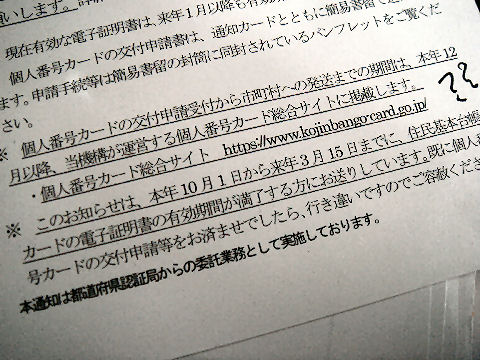 現在有効な電子証明書は、来年1月以降も有効
個人番号カードの交付申請書は、通知カードとともに簡易書留で
ます。申請手続等は簡易書留の封筒に同封されているパンフレットをご覧くだ
さい。
※ 個人番号カードの交付申請受付から市町村への発送までの期間は、本年12
月以降、当機構が運営する個人番号カード総合サイトに掲載します。
・個人番号カード総合サイト https://www.kojinbango-card.go.jp/
??
※ このお知らせは、本年10月1日から来年3月15日までに、住民基本台帳
カードの電子証明書の有効期間が満了する方にお送りしています。既に個人番
号カードの交付申請等をお済ませでしたら、行き違いですのでご容赦くださ
本通知は都道府県認証局からの委託業務として実施しております。